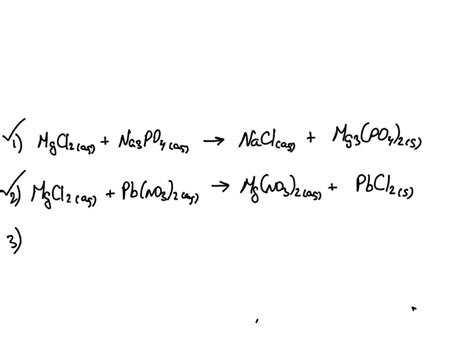 ✓1) MgCl2(aq) + Na3PO4(aq) → NaCl(aq) + Mg3(PO4)2(s)
✓2) MgCl2(aq) + Pb(NO3)2(aq) → Mg(NO3)2(aq) + PbCl2(s)
3)